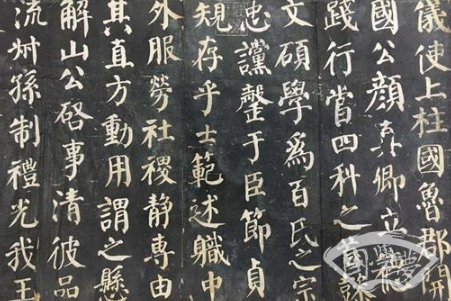 儀使上柱國魯郡開
國公顏真卿立德
踐行當四科之首懿
文碩學爲百氏之宗
忠讜罄于臣節貞
規存乎士範述職中
外服勞社稷静專由
其直方動用謂之懸
解山公啓事清彼品
流叔孫制禮光我王